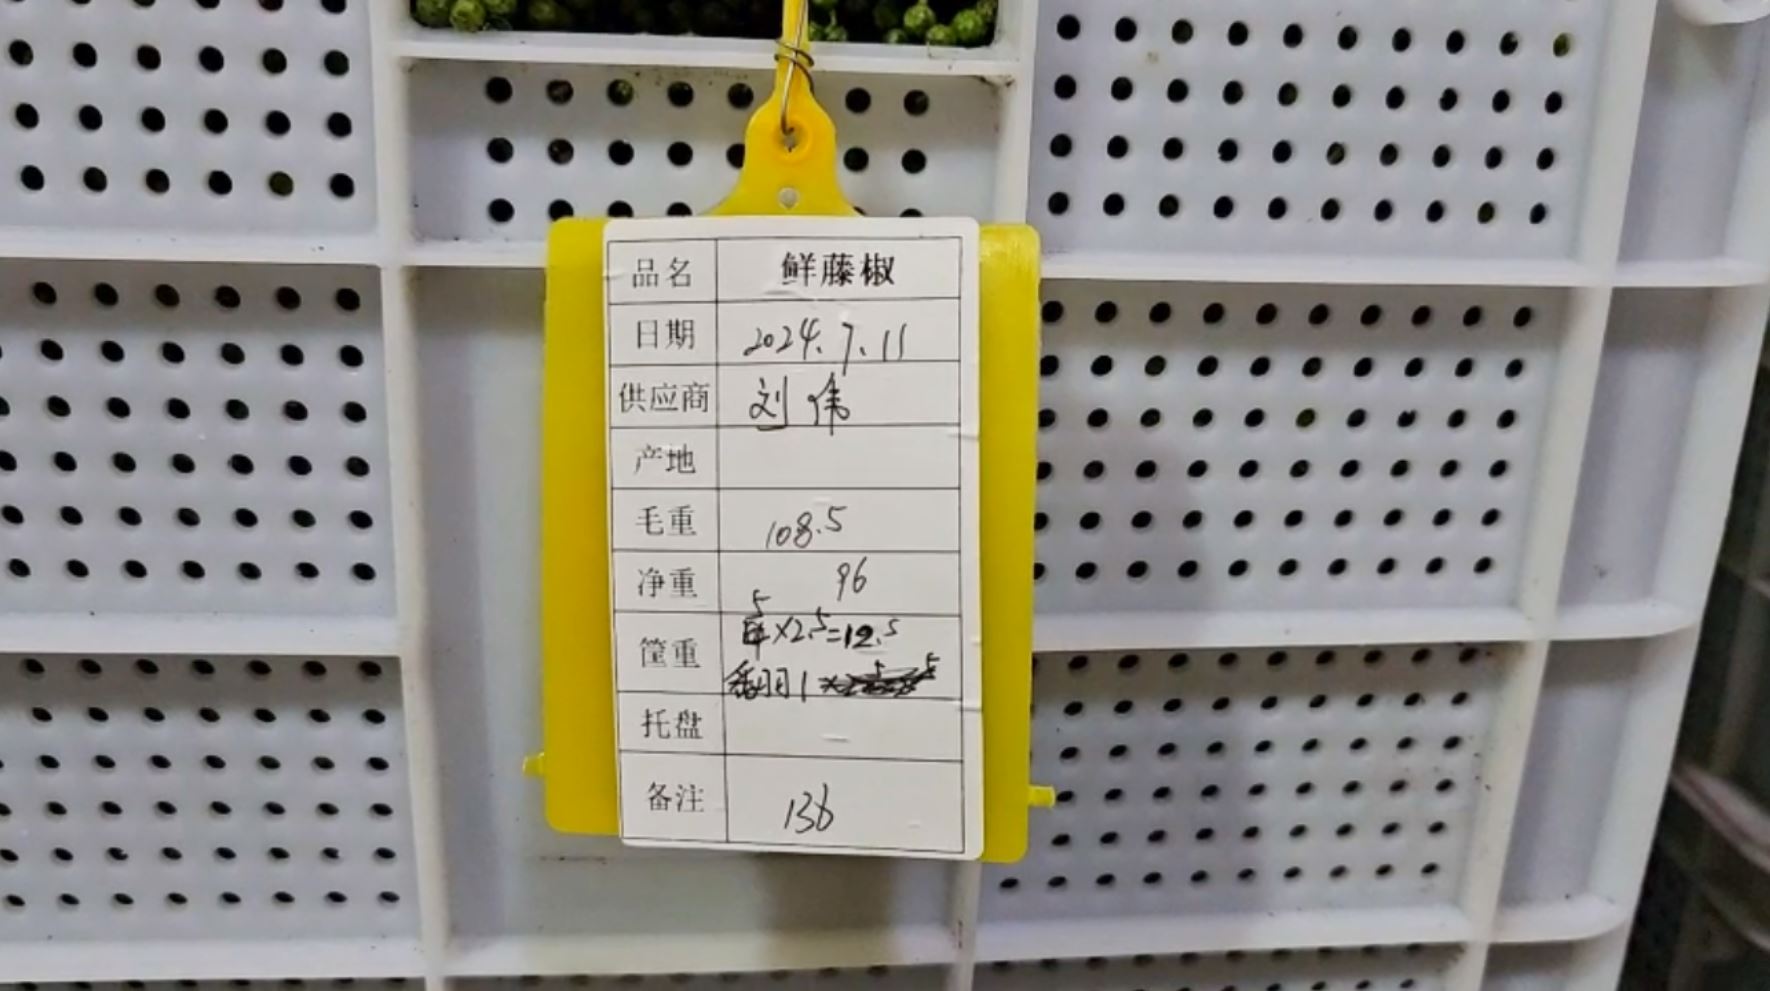 品名 鲜藤椒
日期 2024.7.11
供应商 刘伟
产地
毛重 108.5
净重 96
筐重 5×2.5=12.5
1
托盘
备注 136